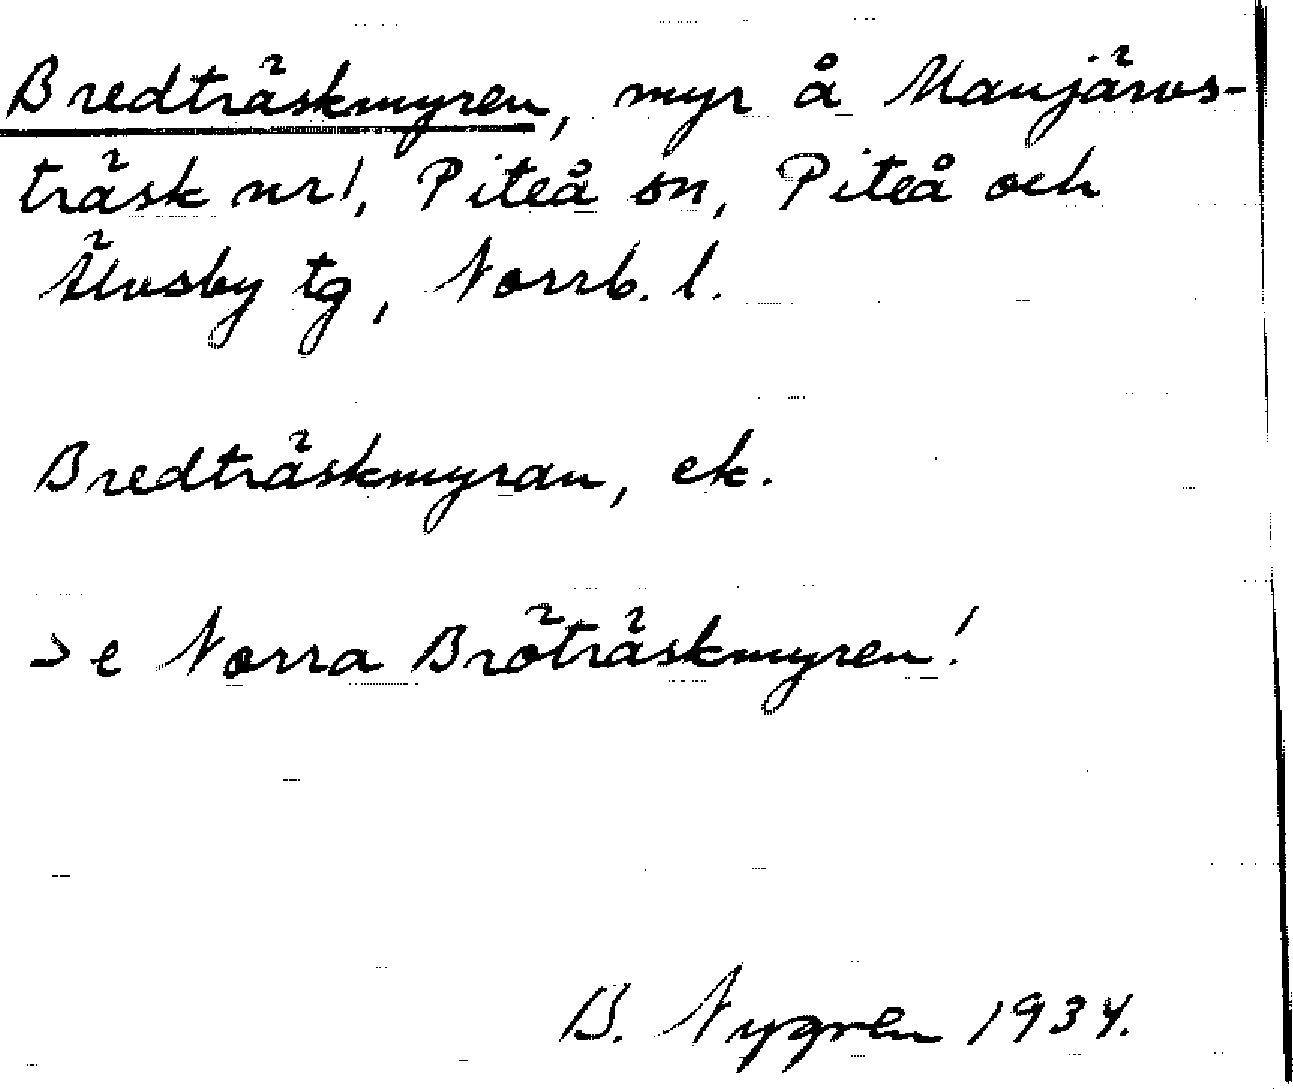 Bredträskmyren, myr å Manjärvs-
träsk nr 1, Piteå sn, Piteå och
Älvsby tg, Norrb. l.
Bredträskmyran, ek.
Se Norra Bröträskmyren!
B. Nygren 1934.